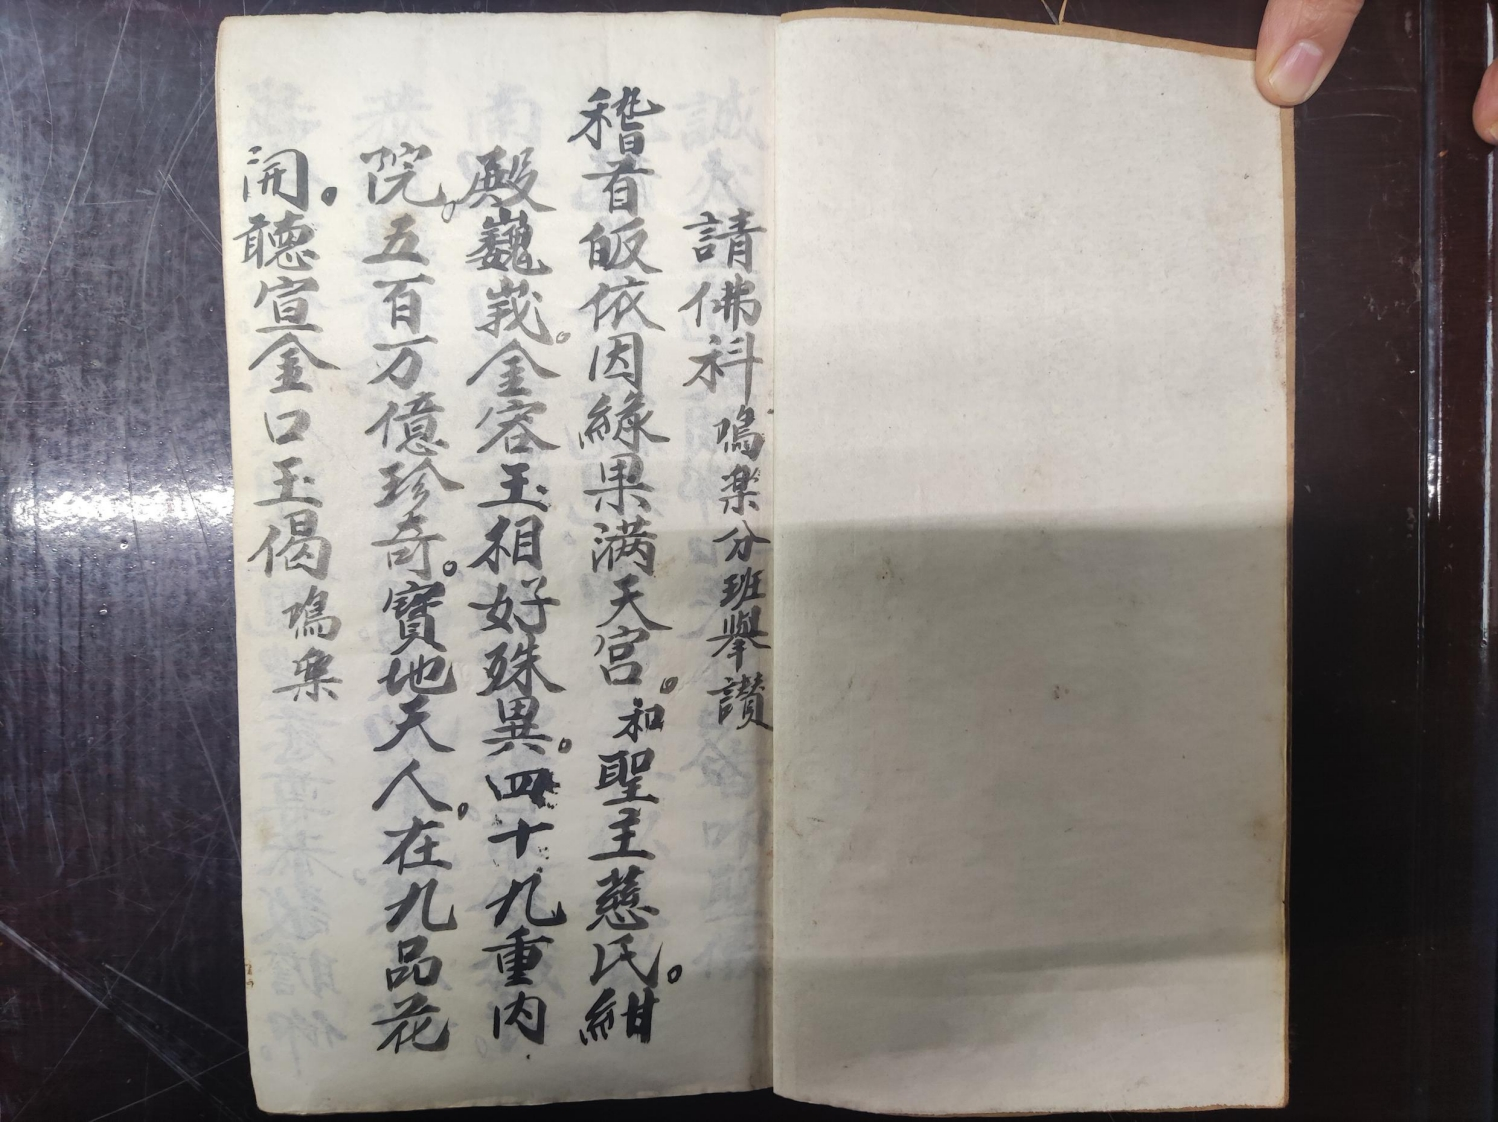 請佛科 鳴楽分班舉讃
稽首皈依因緣果滿天宮。和聖主慈氏。紺
殿巍峩。金容玉相好殊異。四十九重内
院。五百万億珍奇。寳地天人。在九品花
開。聴宣金口玉偈 鳴楽